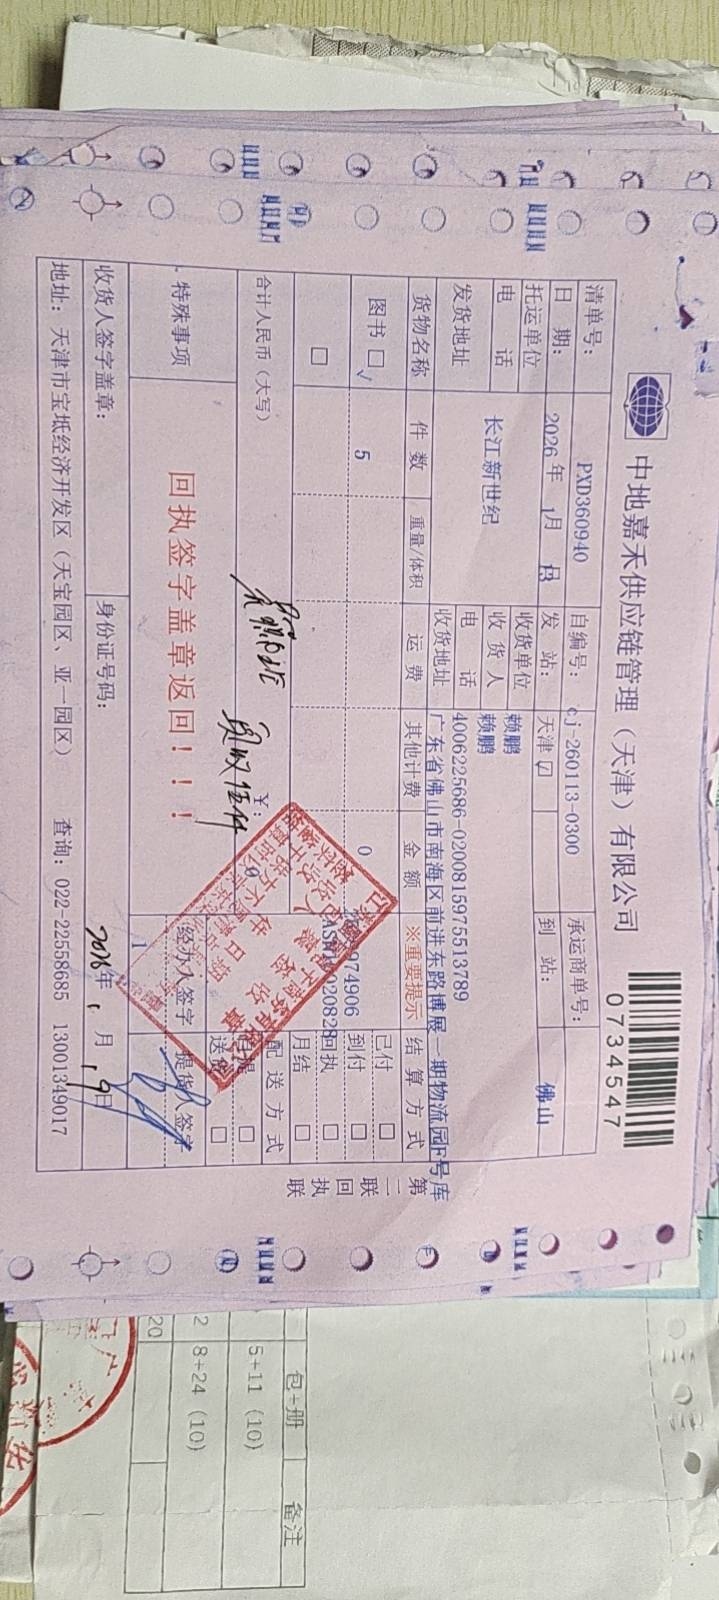 中地嘉禾供应链管理（天津）有限公司
0734547
清单号： PXD360940 自编号： cj-260113-0300 承运商单号：
日 期： 2026 年 1月 日 发 站： 天津 ☑ 到 站： 佛山
托运单位 长江新世纪 收货单位 赖鹏
电 话 收 货 人 赖鹏
发货地址 电 话 4006225686-0200815975513789
收货地址 广东省佛山市南海区前进东路博展一期物流园F号库
货物名称 件 数 重量/体积 运 费 其他计费 金 额 ※重要提示 结 算 方 式
图书 □ √ 5 0 974906 已付 □
到付 □
□ 回执 □
月结 □
合计人民币（大写） ¥： 0 配 送 方 式
自提 □
送货 □
特殊事项 回执签字盖章返回！！！ 经办人签字 提货人签字
1
收货人签字盖章： 身份证号码： 2026年 1 月 19日
地址： 天津市宝坻经济开发区（天宝园区、亚一园区） 查询：022-22558685 13001349017
第二联 回执联
包+册 备注
5+11 (10)
2 8+24 (10)
20